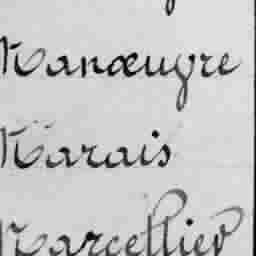 Manœuvre
Marais
Marcellier